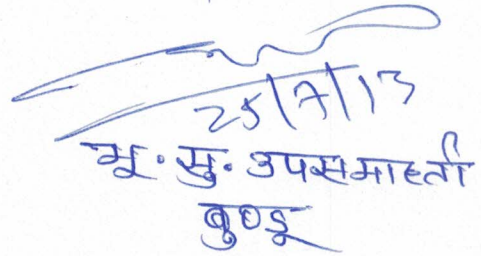 25/7/13
भू. सु. उपसमाहर्ता
बुण्डू